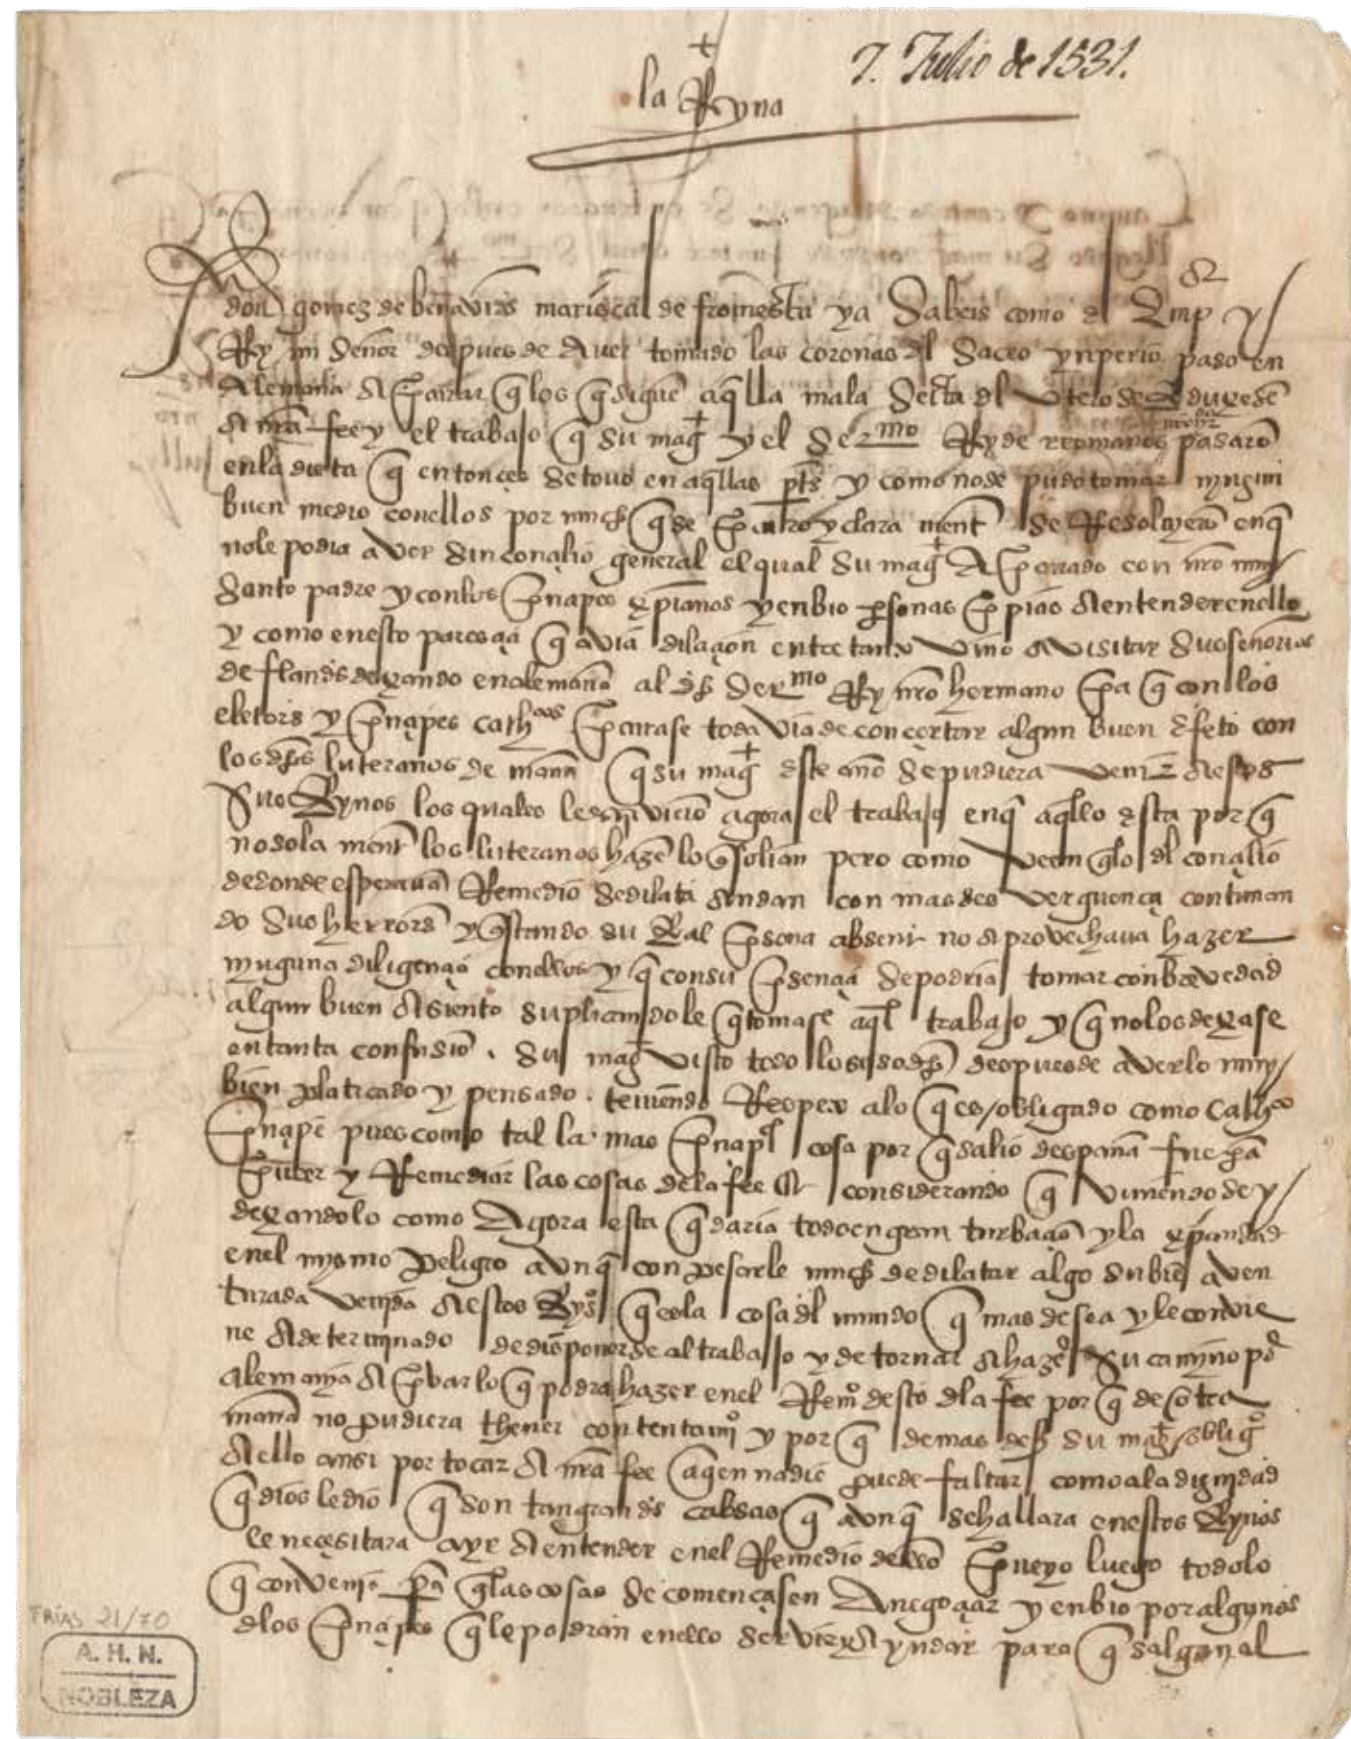 +
7. Julio de 1531.
la Ryna
don gomez de benavids mariscal de fromesta ya Sabeis como el Emp or y
Ry mi Señor despues de Aver tomado las coronas del Sacro ynperio paso en
Alemana A procurar q los q siguē aqlla mala Secta del
A nra fee y el trabajo q su mag y el Ser mo Ry de rromanos pasarō
en la dieta q entonçes se tovo en aqllas pts y como no se pudo tomar nyngun
buen medio con ellos por mucho q se procuro y clara ment se Resolvyerō en q
no se podia aver sin conçilio general el qual su mag A procurado con nro muy
Santo padre y con los prinçipes xpianos y enbio psonas propias A entender en ello
y como en esto pareçia q avia dilaçion entre tanto vino A visitar sus señorios
de flands dexando en alemania al dho Ser mo Ry nro hermano pa q con los
eletors y prinçipes cathcos procurase toda via de conçertar algun buen efeto con
los dhos luteranos de mana q su mag este año se pudiera venir A estos
Sus Rynos los quales le agora el trabajo en q aqllo esta por q
no sola ment los luteranos hazē lo q solian pero como veen qlo del conçilio
de donde esperavā Remedio se dilata Andan con mas desverguença continuan
do sus herrors y questando su Real psona absent no Aprovechava hazer
nynguna diligençia con ellos y q con su psençia se podria tomar con brevedad
algun buen Asiento suplicandole q tomase aql trabajo y q no los dexase
en tanta confusiō. Su mag visto todo lo susodho despues de averlo muy
bien platicado y pensado. teniendo Respeto a lo q es obligado como Cathco
prinçipe pues como tal la mas prinçipal cosa por q salio despaña fue pa
prover y Remediar las cosas de la fee considerando q viniendose y
dexandolo como Agora esta qdaria todo en gran turbaçiō y la xpiandad
en el mysmo peligro aunq con pesarle mucho de dilatar algo su bie aven
turada venida A estos Ryos q es la cosa del mundo q mas desea y le convie
ne A determinado de disponerse al trabajo y de tornar A hazer su camyno por
alemanya A probar lo q podra hazer en el Remo desto dla fee por q de otra
mana no pudiera thener contentamio y por q demas deso su mag obligo
A ello ansi por tocar A nra fee A qen nadie puede faltar como a la dignidad
q dios le dio q son tan grands cabsas q aunq se hallara en estos Rynos
le neçesitara A yr A entender en el Remedio dello proveyo luego todo lo
q convenia pa q las cosas se començasen A negoçiar y enbio por algunos
dlos prinçipes q le podran en ello servir y Ayudar para q salgan al
FRIAS 21/70
A. H. N.
NOBLEZA